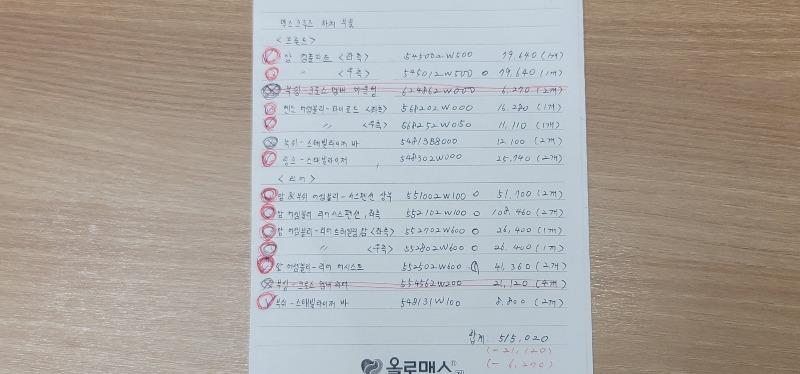 맥스크루즈 하체 부품
<프론트>
암 컴플리트 <좌측> 545002W500 79.640 (1개)
〃 <우측> 545012W500 0 79.640 (1개)
부싱-크로스 멤버 마운팅 624862W000 6,270 (2개)
엔드 어셈블리-타이로드 <좌측> 568202W000 16.280 (1개)
〃 <우측> 568252W050 11,110 (1개)
부쉬-스태빌라이저 바 54813B8000 12.100 (2개)
링크-스태빌라이저 548302W000 25,740 (2개)
<리어>
암 & 부쉬 어셈블리-서스펜션 상부 551002W100 0 51,700 (2개)
암 어셈블리 리어 서스펜션, 좌측 552102W100 0 108,460 (2개)
암 어셈블리-리어 트레일링 암 <좌측> 552702W600 0 26,400 (1개)
〃 <우측> 552802W600 0 26,400 (1개)
암 어셈블리-리어 어시스트 552502W600 41,360 (2개)
부싱-크로스 멤버 554562W200 21,120 (4개)
부쉬-스태빌라이저 바 548131W100 8.800 (2개)
합계 515,020
(-21,120)
(-6,270)
올로맥스®